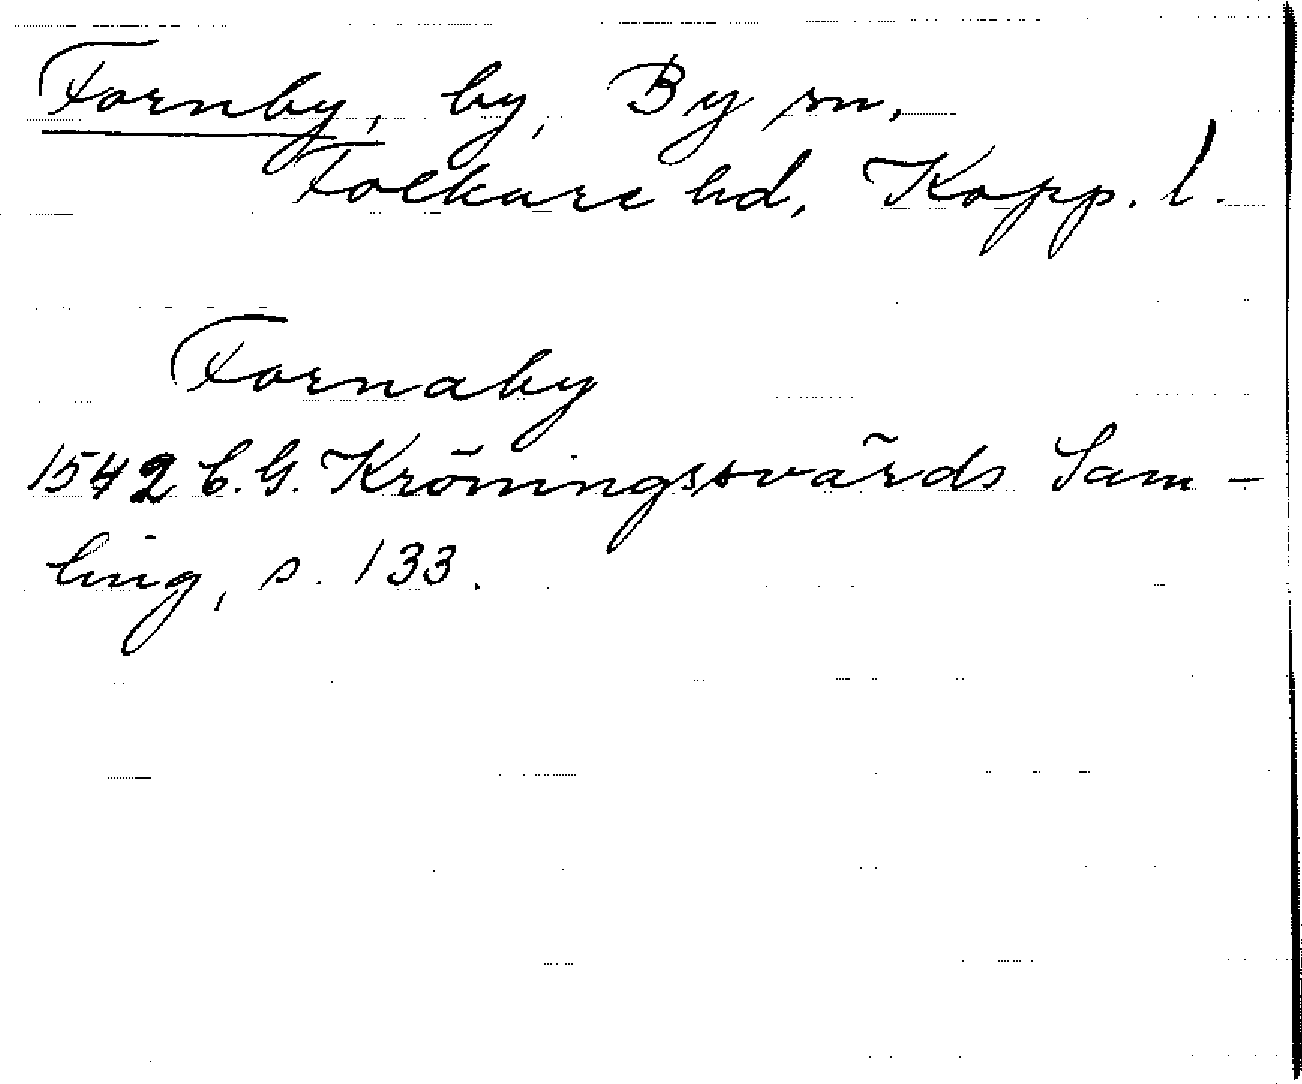 Fornby, by, By sn,
Folkare hd, Kopp. l.
Fornaby
1542 C. G. Kröningssvärds Sam-
ling, s. 133.